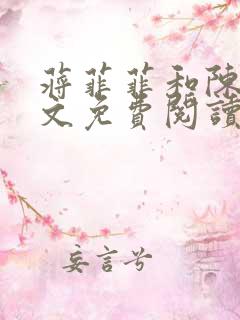 蔣菲菲和陳
文免費閱讀
妄言兮